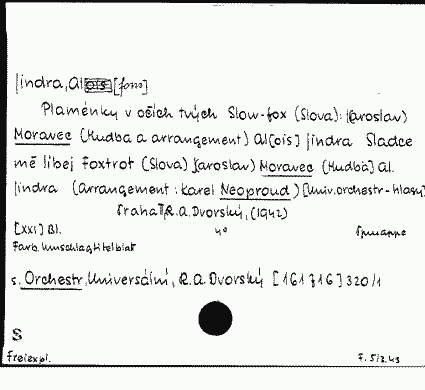 Jindra, Alois [forro]
Plaménky v očích tvých Slow-fox (Slova): J(aroslav)
Moravec (Hudba a arrangement) Al[ois] Jindra Sladce
mě líbej Foxtrot (Slova) J(aroslav) Moravec (Hudbà) Al.
Jindra (Arrangement: Karel Neoproud) [Univ. orchestr-hlasy]
Praha II, R.A. Dvorský, (1942)
[XXI] Bl. 4°
Farb. Umschlagtitelblat
s. Orchestr, Universální, R.A. Dvorský [161716] 320/1
S
Freiexpl. F. 5/2.43